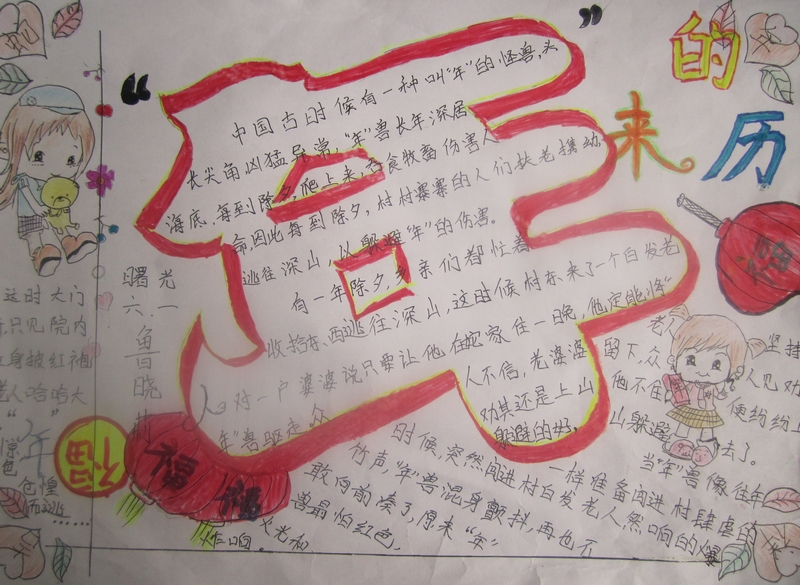 “年”
的
来
历
中国古时候有一种叫“年”的怪兽,头
长尖角凶猛异常,“年”兽长年深居
海底,每到除夕,爬上来,吞食牧畜伤害人
命,因此每到除夕,村村寨寨的人们扶老携幼
逃往深山,以躲避“年”的伤害。
有一年除夕,乡亲们都忙着
收拾东西逃往深山,这时候村东来了一个白发老
人对一户婆婆说只要让他在她家住一晚,他定能将“
年”兽驱走.众
人不信,老婆婆
对其还是上山
躲避的好,
老人
坚持
留下,众
人见劝
他不住
便纷纷上
山躲避
去了。
当“年”兽像往年
一样准备闯进村肆虐的
时候,突然闯进村白发老人然响的爆
竹声,“年”兽混身颤抖,再也不
敢向前凑了,原来“年”
兽最怕红色,
火光和
炸响.
这时大门
只见院内
身披红袍
人哈哈大
年
仓惶
而逃……
曙光
六.一
鲁晓
福
福
福
福